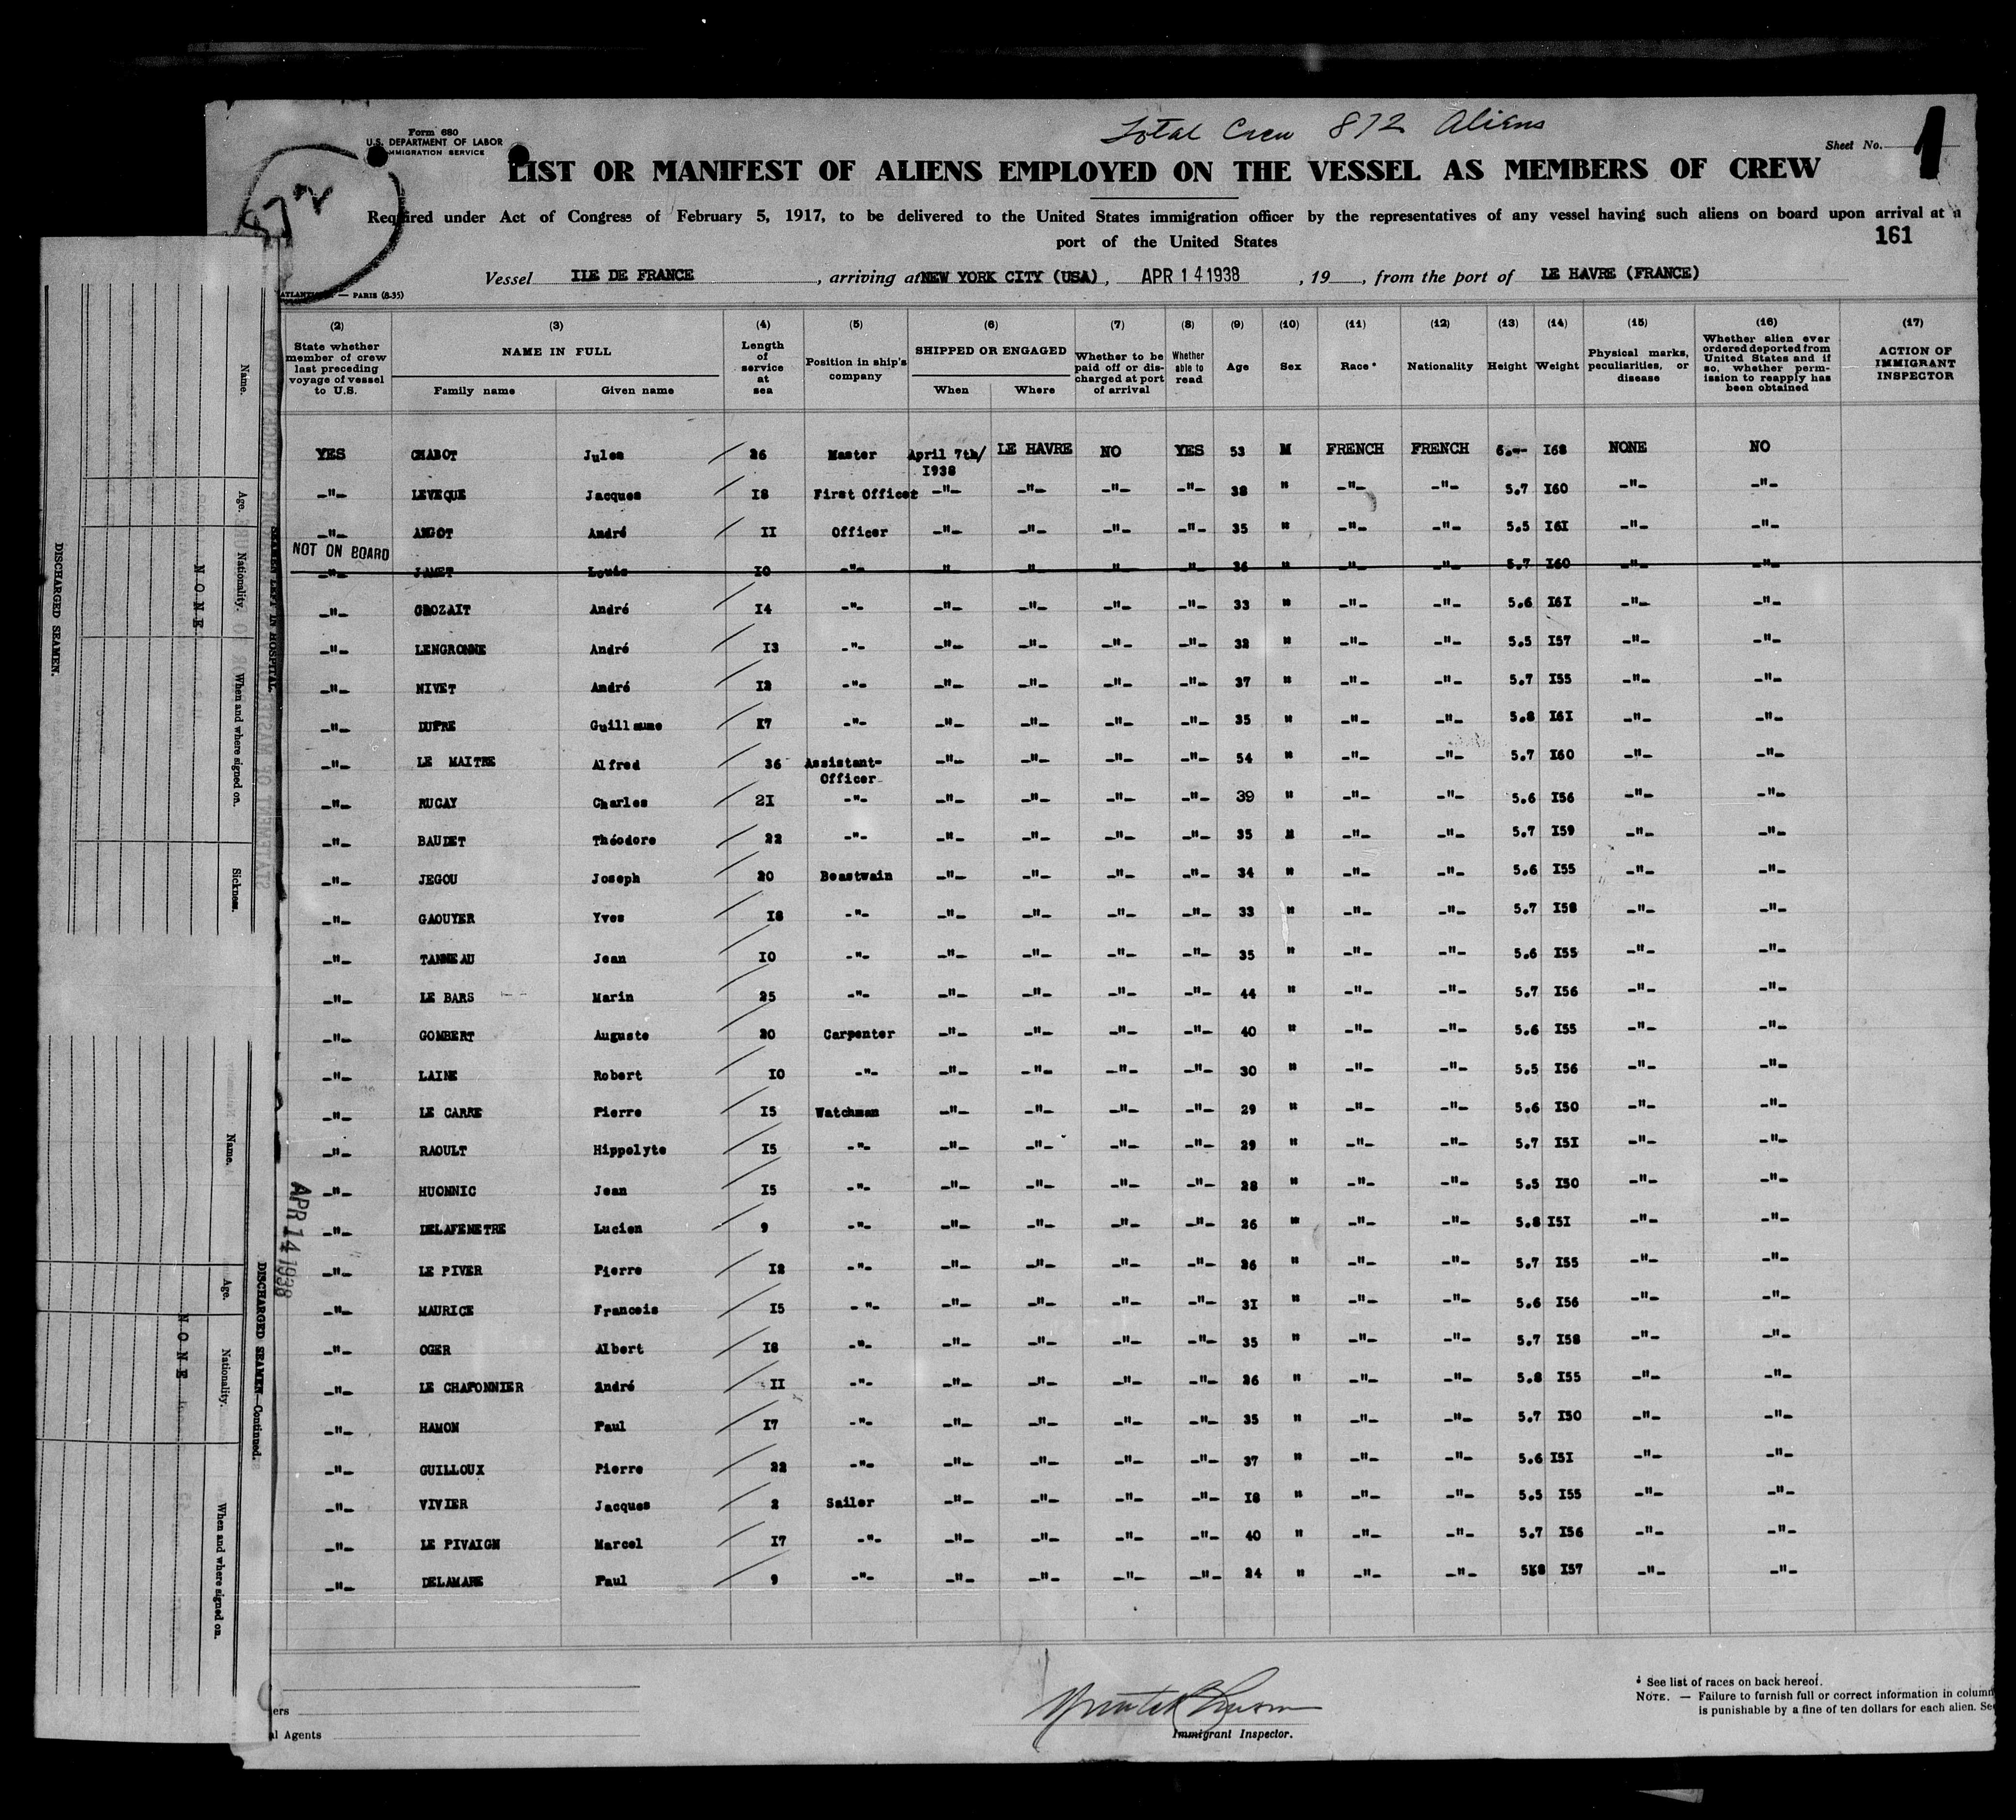 Total Crew 872 Aliens
Form 680
U.S. DEPARTMENT OF LABOR
IMMIGRATION SERVICE
Sheet No. 1
872
LIST OR MANIFEST OF ALIENS EMPLOYED ON THE VESSEL AS MEMBERS OF CREW
Required under Act of Congress of February 5, 1917, to be delivered to the United States immigration officer by the representatives of any vessel having such aliens on board upon arrival at a
port of the United States
161
Vessel ILE DE FRANCE, arriving at NEW YORK CITY (USA), APR 14 1938, 19 , from the port of LE HAVRE (FRANCE)
— PARIS (8-35)
(2) (3) (4) (5) (6) (7) (8) (9) (10) (11) (12) (13) (14) (15) (16) (17)
State whether member of crew last preceding voyage of vessel to U.S. | NAME IN FULL Family name Given name | Length of service at sea | Position in ship's company | SHIPPED OR ENGAGED When Where | Whether to be paid off or discharged at port of arrival | Whether able to read | Age | Sex | Race* | Nationality | Height | Weight | Physical marks, peculiarities, or disease | Whether alien ever ordered deported from United States and if so, whether permission to reapply has been obtained | ACTION OF IMMIGRANT INSPECTOR
YES CHABOT Jules 26 Master April 7th/ 1938 LE HAVRE NO YES 53 M FRENCH FRENCH 6.-- I68 NONE NO
-"- LEVEQUE Jacques I8 First Officer -"- -"- -"- -"- 38 " -"- -"- 5.7 I60 -"- -"-
-"- ANGOT André II Officer -"- -"- -"- -"- 35 " -"- -"- 5.5 I6I -"- -"-
NOT ON BOARD
-"- JAMET Louis I0 -"- " " " " 36 " -"- -"- 5.7 I60 -"- -"-
-"- GROZAIT André I4 -"- -"- -"- -"- -"- 33 " -"- -"- 5.6 I6I -"- -"-
-"- LENGRONNE André I3 -"- -"- -"- -"- -"- 32 " -"- -"- 5.5 I57 -"- -"-
-"- NIVET André I2 -"- -"- -"- -"- -"- 37 " -"- -"- 5.7 I55 -"- -"-
-"- DUPRE Guillaume I7 -"- -"- -"- -"- -"- 35 " -"- -"- 5.8 I6I -"- -"-
-"- LE MAITRE Alfred 36 Assistant-Officer -"- -"- -"- -"- 54 " -"- -"- 5.7 I60 -"- -"-
-"- RUCAY Charles 2I -"- -"- -"- -"- -"- 39 " -"- -"- 5.6 I56 -"- -"-
-"- BAUDET Théodore 22 -"- -"- -"- -"- -"- 35 " -"- -"- 5.7 I59 -"- -"-
-"- JEGOU Joseph 20 Boastwain -"- -"- -"- -"- 34 " -"- -"- 5.6 I55 -"- -"-
-"- GAOUYER Yves I8 -"- -"- -"- -"- -"- 33 " -"- -"- 5.7 I58 -"- -"-
-"- TANNEAU Jean I0 -"- -"- -"- -"- -"- 35 " -"- -"- 5.6 I55 -"- -"-
-"- LE BARS Marin 25 -"- -"- -"- -"- -"- 44 " -"- -"- 5.7 I56 -"- -"-
-"- GOMBERT Auguste 20 Carpenter -"- -"- -"- -"- 40 " -"- -"- 5.6 I55 -"- -"-
-"- LAINE Robert I0 -"- -"- -"- -"- -"- 30 " -"- -"- 5.5 I56 -"- -"-
-"- LE CARRE Pierre I5 Watchman -"- -"- -"- -"- 29 " -"- -"- 5.6 I50 -"- -"-
-"- RAOULT Hippolyte I5 -"- -"- -"- -"- -"- 29 " -"- -"- 5.7 I5I -"- -"-
-"- HUONNIC Jean I5 -"- -"- -"- -"- -"- 28 " -"- -"- 5.5 I50 -"- -"-
-"- DELAFENETRE Lucien 9 -"- -"- -"- -"- -"- 26 " -"- -"- 5.8 I5I -"- -"-
-"- LE PIVER Pierre I2 -"- -"- -"- -"- -"- 26 " -"- -"- 5.7 I55 -"- -"-
-"- MAURICE Francois I5 -"- -"- -"- -"- -"- 3I " -"- -"- 5.6 I56 -"- -"-
-"- OGER Albert I8 -"- -"- -"- -"- -"- 35 " -"- -"- 5.7 I58 -"- -"-
-"- LE CHAFONNIER André II -"- -"- -"- -"- -"- 26 " -"- -"- 5.8 I55 -"- -"-
-"- HAMON Paul I7 -"- -"- -"- -"- -"- 35 " -"- -"- 5.7 I50 -"- -"-
-"- GUILLOUX Pierre 22 -"- -"- -"- -"- -"- 37 " -"- -"- 5.6 I5I -"- -"-
-"- VIVIER Jacques 2 Sailor -"- -"- -"- -"- I8 " -"- -"- 5.5 I55 -"- -"-
-"- LE PIVAIGN Marcel I7 -"- -"- -"- -"- -"- 40 " -"- -"- 5.7 I56 -"- -"-
-"- DELAMARE Paul 9 -"- -"- -"- -"- -"- 24 " -"- -"- 5X8 I57 -"- -"-
Immigrant Inspector.
* See list of races on back hereof.
NOTE. — Failure to furnish full or correct information in column
is punishable by a fine of ten dollars for each alien. Se
ers
al Agents
SEAMEN LEFT IN HOSPITAL
Name. Age. Nationality. When and where signed on. Sickness.
NONE
DISCHARGED SEAMEN.
APR 14 1938
DISCHARGED SEAMEN—Continued.
Name. Age. Nationality. When and where signed on.
NONE